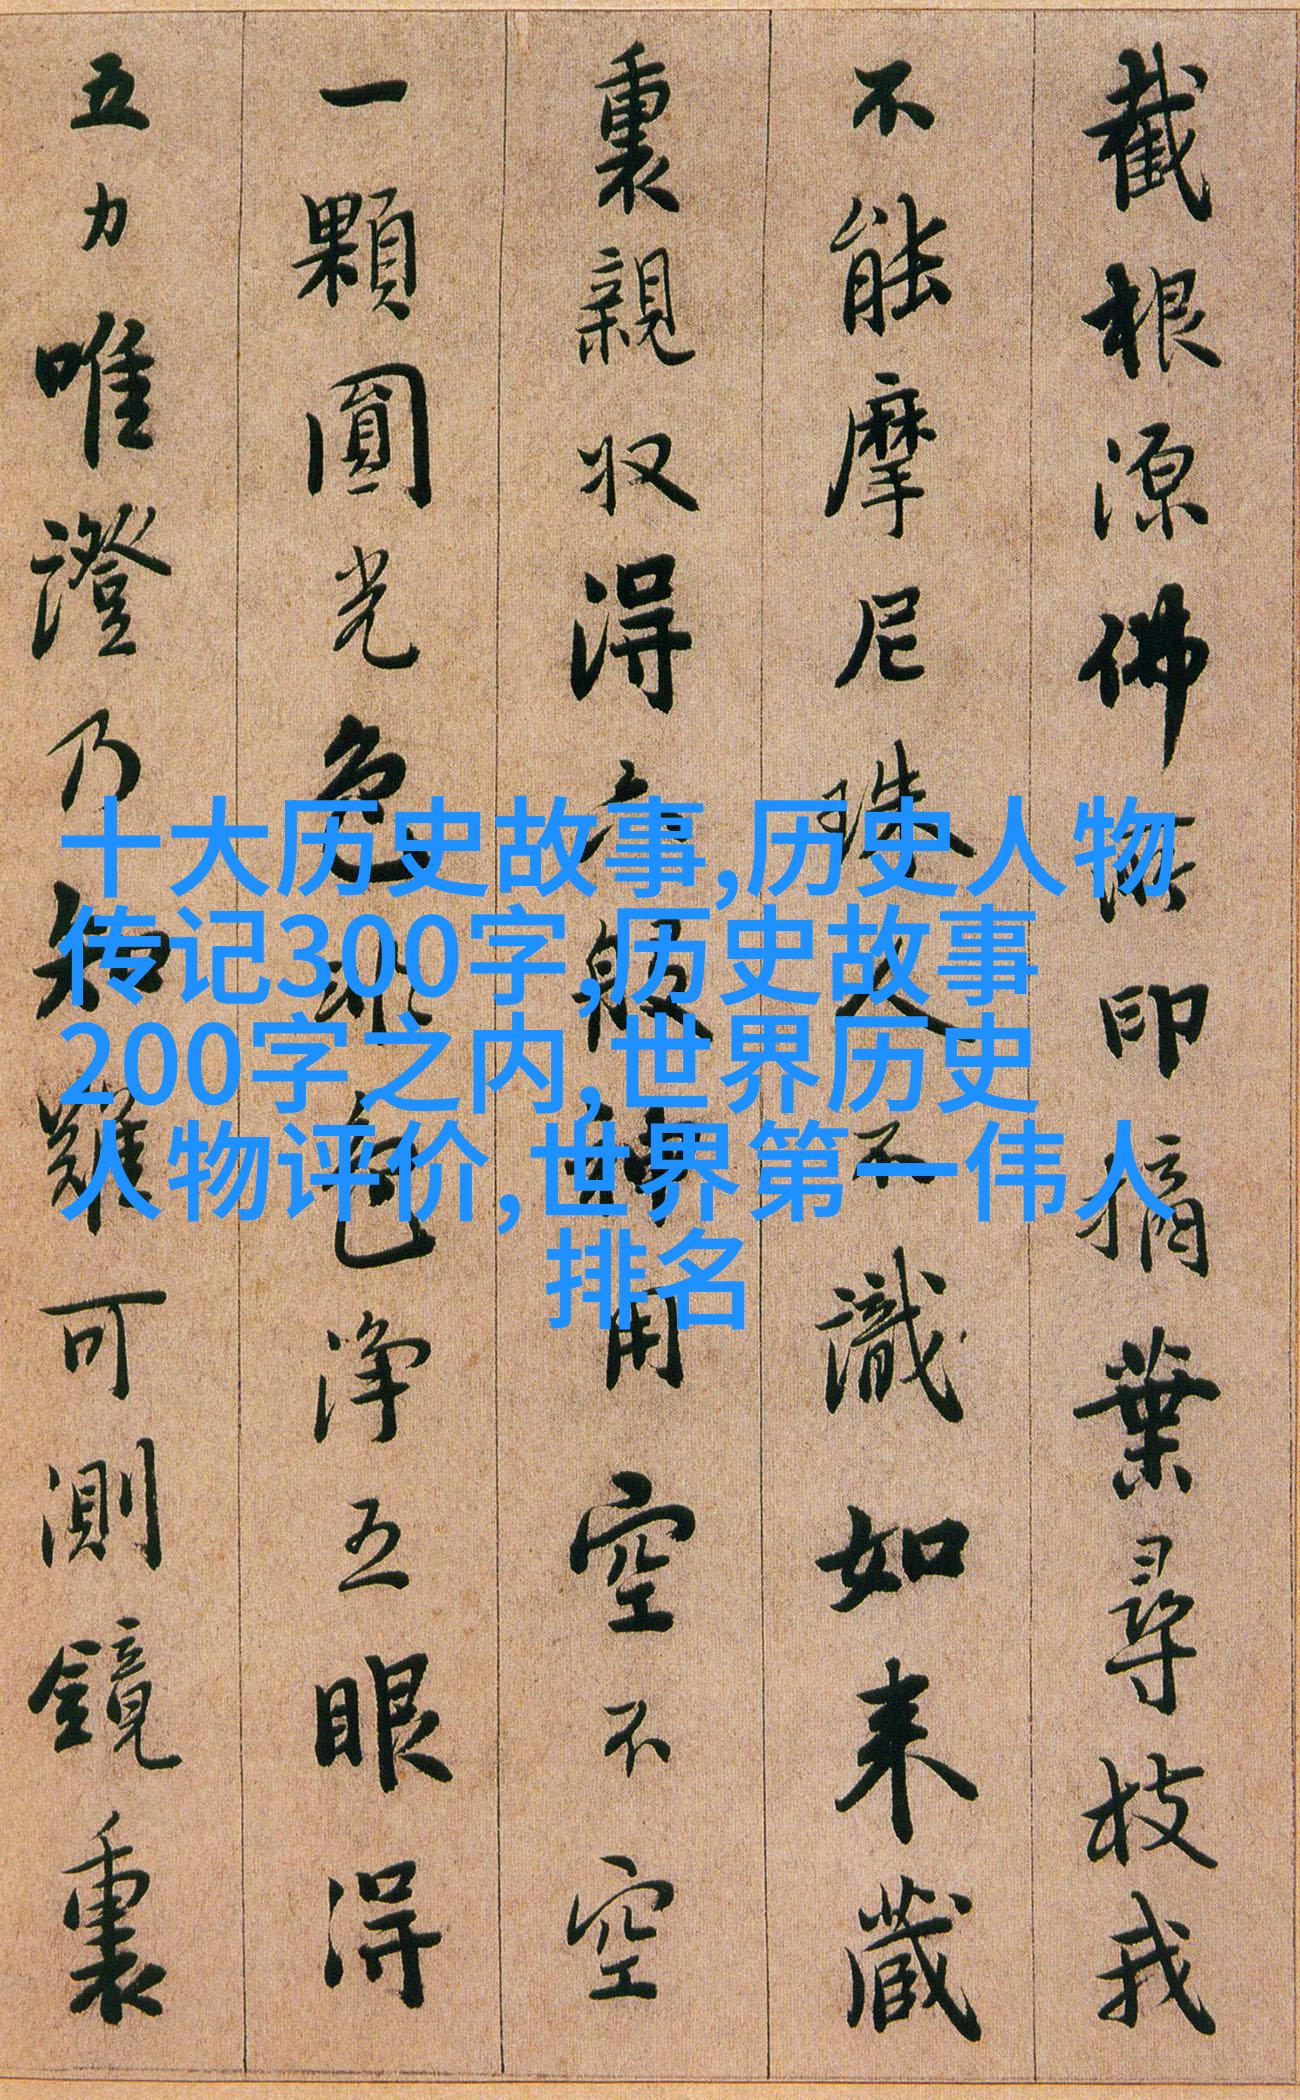 截根源佛所印摘葉尋枝我
不能摩尼珠人不識如来藏
裏親収得六般神用空不空
一顆圓光色非色淨五眼得
五力唯證乃知難可測鏡裏
十大历史故事,历史人物
传记300字,历史故事
200字之内,世界历史
人物评价,世界第一伟人
排名